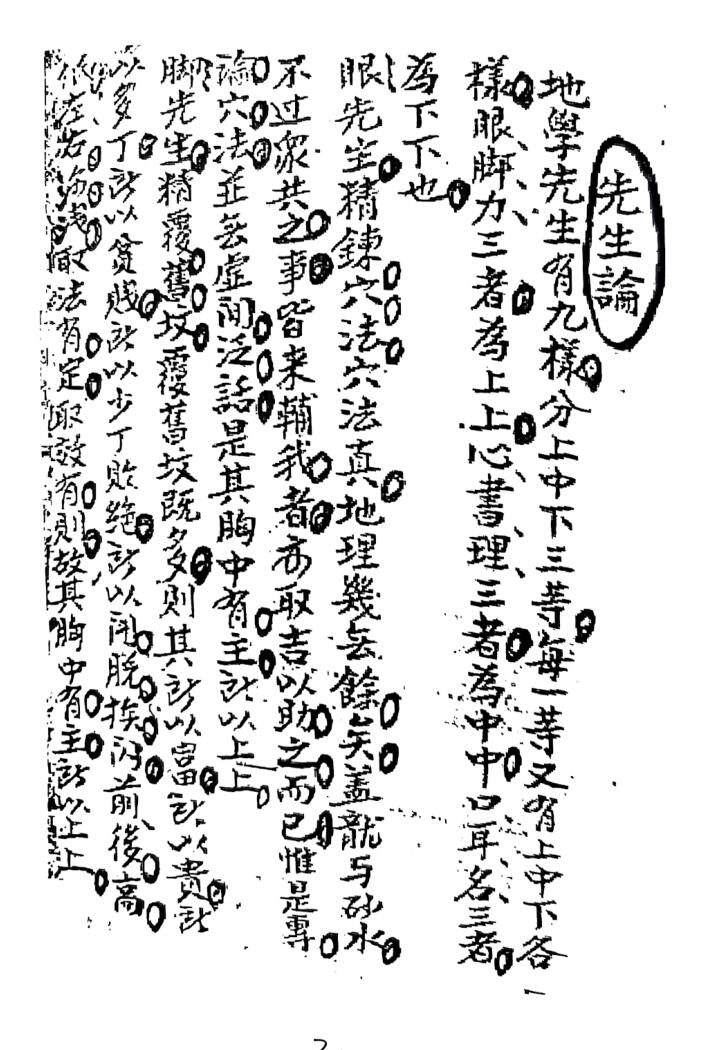 先生論
地學先生有九樣分上中下三等每一等又有上中下各一
樣眼脚力三者為上上心書理三者為中中口耳名三者
為下下也
眼先生精鍊穴法穴法真地理幾無餘矣盖龍与砂水
不过衆共之事皆来輔我者亦取吉以助之而已惟是專
論穴法並無虚閒泛話是其胸中有主所以上上
脚先生精覆舊坟覆舊坟既多則其所以富所以貴所
以多丁所以貧賤所以少丁敗絶所以前後高
左右淺取法有定取效有則故其胸中有主所以上上
2